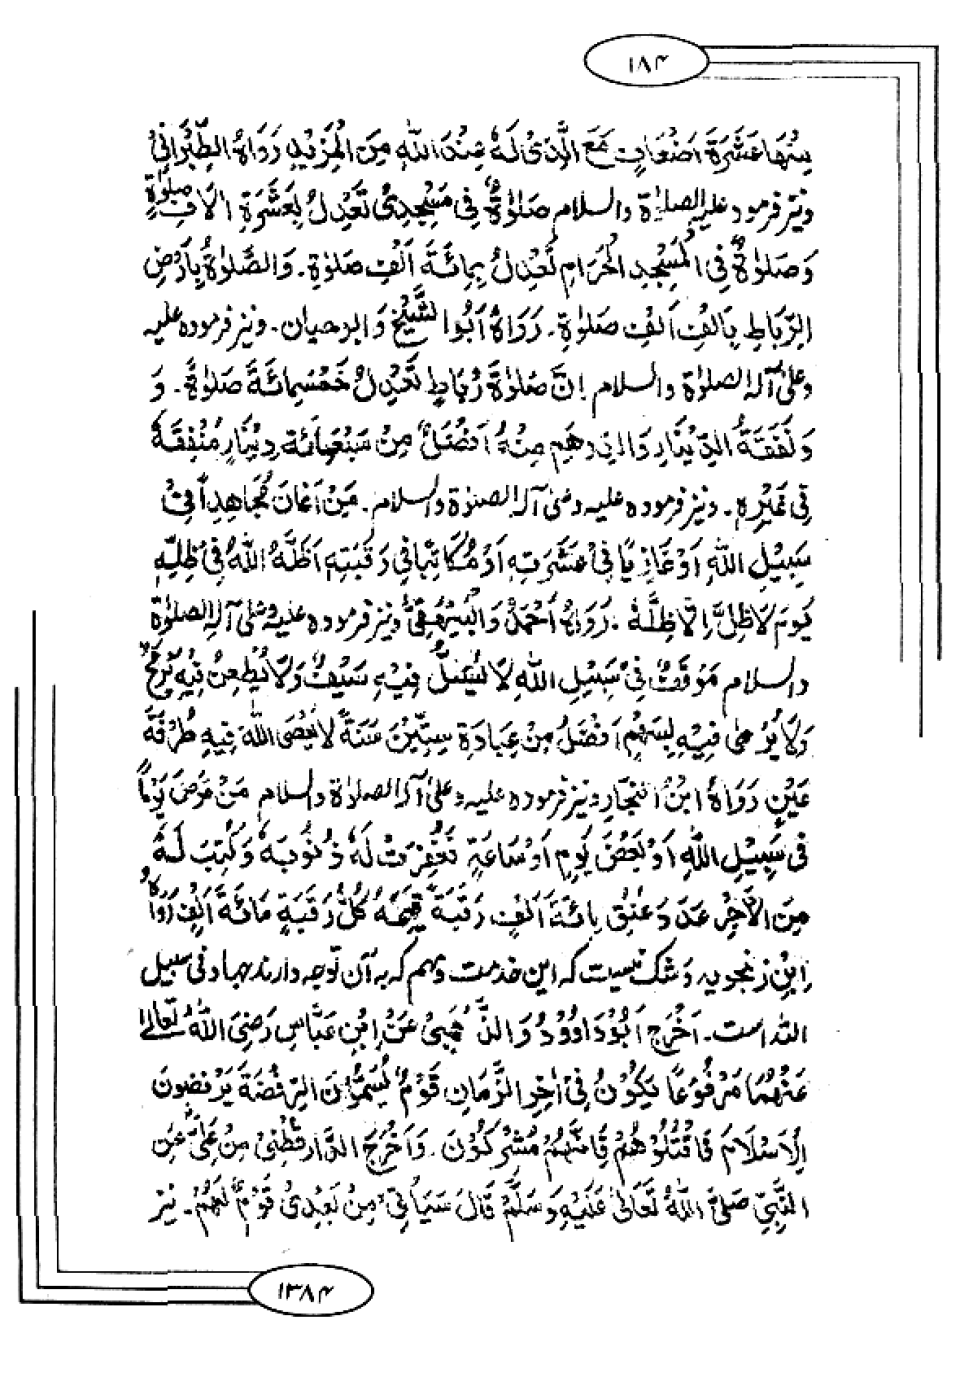 ۱۸۴
مِنْهَا عَشَرَةَ اَضْعَافٍ مَعَ الَّذِیْ لَهٗ عِنْدَ اللّٰهِ مِنَ الْمَزِیْدِ رَوَاهُ الطِّبْرَانِیُّ
ونیز فرمود علیه الصلاة والسلام صَلٰوةٌ فِی مَسْجِدِیْ تَعْدِلُ بِعَشَرَةِ اٰلَافِ صَلٰوةٍ
وَصَلٰوةٌ فِی الْمَسْجِدِ الْحَرَامِ تَعْدِلُ بِمِائَةِ اَلْفِ صَلٰوةٍ۔ وَالصَّلٰوةُ بِاَرْضِ
الرِّبَاطِ بِاَلْفِ اَلْفِ صَلٰوةٍ۔ رَوَاهُ اَبُوا لشَّیْخِ وَابوحیان۔ ونیز فرموده علیه
وعلیٰ آله الصلوٰة والسلام اِنَّ صَلٰوةَ رُبَاطٍ تَعْدِلُ خَمْسَمِائَةَ صَلٰوةً۔ وَ
وَنَفَقَةُ الدِّیْنَارِ وَالدِرْهَمِ مِنْهُ اَفْضَلُ مِنْ سَبْعِمِائَةِ دِیْنَارٍ مُنْفِقَةً
فِی غَیْرِهٖ۔ ونیز فرموده علیه وعلی آله الصلوٰة والسلام۔ مَنْ اَعَانَ مُجَاهِداً فِیْ
سَبِیْلِ اللّٰهِ اَوْ غَازِیًا فِیْ عَشَرَتِهٖ اَوْ مُکَاتِبًا فِی رَقَبَتِهٖ اَظَلَّهُ اللّٰهُ فِیْ ظِلِّهٖ
یَوْمَ لَا ظِلَّ اِلَّا ظِلَّهٗ۔ رَوَاهُ اَحْمَدُ وَالْبَیْهَقِیُّ ونیز فرموده علیه وعلی آله الصلوٰة
والسلام مَوْقَفٌ فِیْ سَبِیْلِ اللّٰهِ لَا یُسَلُّ فِیْهِ سَیْفٌ وَلَا یُطْعَنُ فِیْهِ بِرُمْحٍ
وَلَا یُرْمٰی فِیْهِ بِسَهْمٍ اَفْضَلُ مِنْ عِبَادَةِ سِتِّیْنَ سَنَةً لَا یُعْصَی اللّٰهَ فِیْهِ طُرْفَةَ
عَیْنٍ رَوَاهُ ابْنُ النَّجَّارِ ونیز فرموده علیه وعلیٰ آله الصلاة والسلام مَنْ مَرَضَ یَوْمًا
فِی سَبِیْلِ اللّٰهِ اَوْ بَعْضَ یَوْمٍ اَوْ سَاعَةٍ غُفِرَتْ لَهٗ ذُنُوبَهٗ وَکُتِبَ لَهٗ
مِنَ الْاَجْرِ عَدَدَ عِتْقِ مِائَةَ اَلْفِ رَقَبَةٍ قِیْمَةُ کُلِّ رَقَبَةٍ مَائَةُ اَلْفٍ رَوَاهُ
ابْنِ زنجویه وَشک نیست که این خدمت وهم که به آن توجه دارند جهاد فی سبیل
الله است۔ اَخْرَجَ اَبُوْ دَاوُوْدُ وَالذَّهَبِیْ عَنْ اِبْنِ عَبَّاسٍ رَضِیَ اللّٰهُ تَعَالٰی
عَنْهُمَا مَرْفُوْعًا یَکُوْنُ فِیْ اٰخِرِ الزَّمَانِ قَوْمٌ یُسَمُّوْنَ الرِّفْضَةَ یَرْفِضُوْنَ
الْاِسْلَامَ فَاقْتُلُوْهُمْ فَاِنَّهُمْ مُشْرِکُوْنَ۔ وَاَخْرَجَ الدَّارقُطْنِیْ مِنْ عَلِیٍّ عَنِ
النَّبِیِّ صَلَّی اللّٰهُ تَعَالٰی عَلَیْهِ وَسَلَّمَ قَالَ سَیَاْتِیْ مِنْ بَعْدِیْ قَوْمٌ لَهُمْ۔ نیز
۱۳۸۴